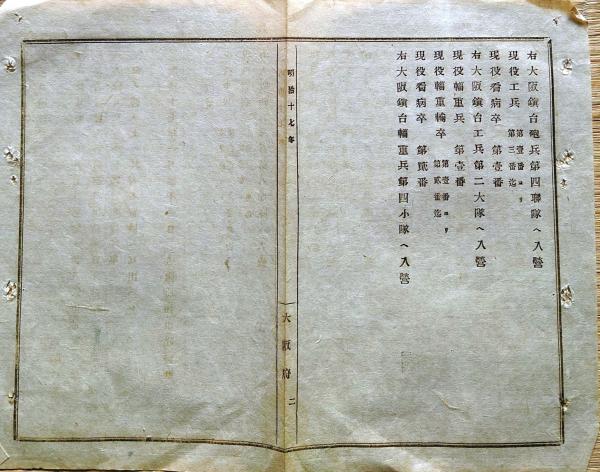 右大阪鎭台砲兵第四聯隊ヘ入營
現役工兵 第壹番ヨリ第三番迄
現役看病卒 第壹番
右大阪鎭台工兵第二大隊ヘ入營
現役輜重兵 第壹番
現役輜重輸卒 第壹番ヨリ第貳番迄
現役看病卒 第貳番
右大阪鎭台輜重兵第四小隊ヘ入營
明治十七年
大阪府 二